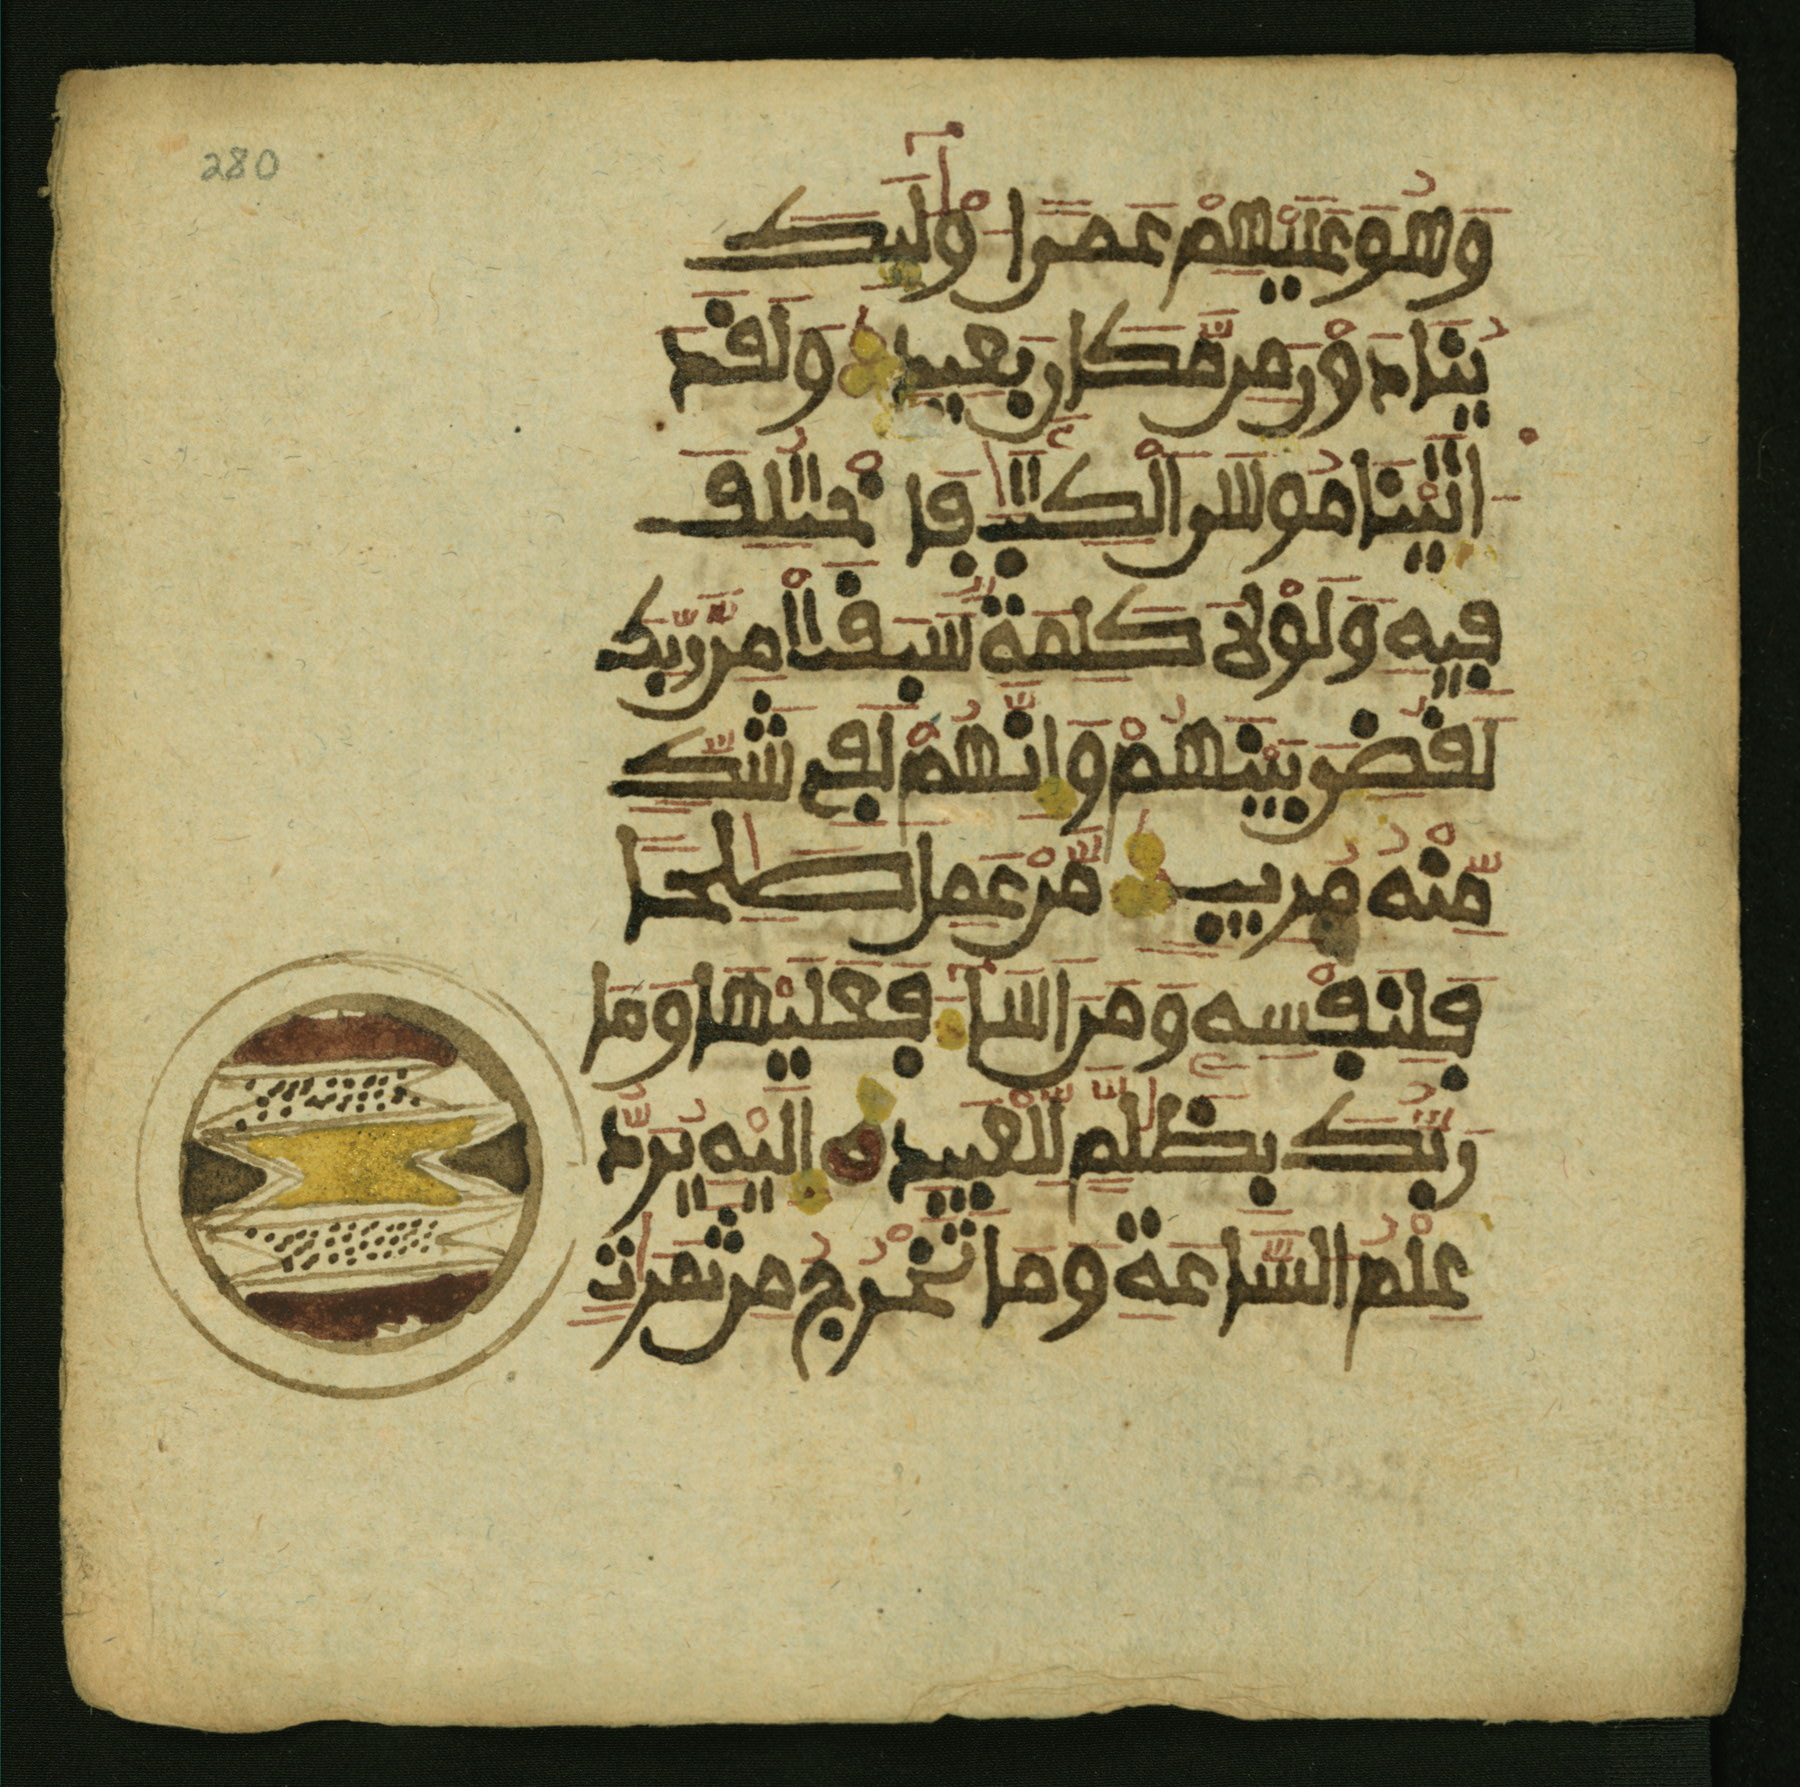 280
وَهُوَ عَلَيْهِمْ عَمًى ا۟وْلَٰٓئِكَ
يُنَادَوْنَ مِن مَّكَانٍ بَعِيدٍ وَلَقَدَ
اتَيْنَا مُوسَى اَلْكِتَٰبَ فَاخْتُلِفَ
فِيهِ وَلَوْلَا كَلِمَةٌ سَبَقَتْ مِن رَّبِّكَ
لَقُضِىَ بَيْنَهُمْ وَإِنَّهُمْ لَفِى شَكٍّ
مِّنْهُ مُرِيبٍ مَّنْ عَمِلَ صَٰلِحًا
فَلِنَفْسِهِ وَمَنَ اسَآءَ فَعَلَيْهَا وَمَا
رَبُّكَ بِظَلَّٰمٍ لِّلْعَبِيدِ إِلَيْهِ يُرَدُّ
عِلْمُ السَّاعَةِ وَمَا تَخْرُجُ مِن ثَمَرَٰتٍ